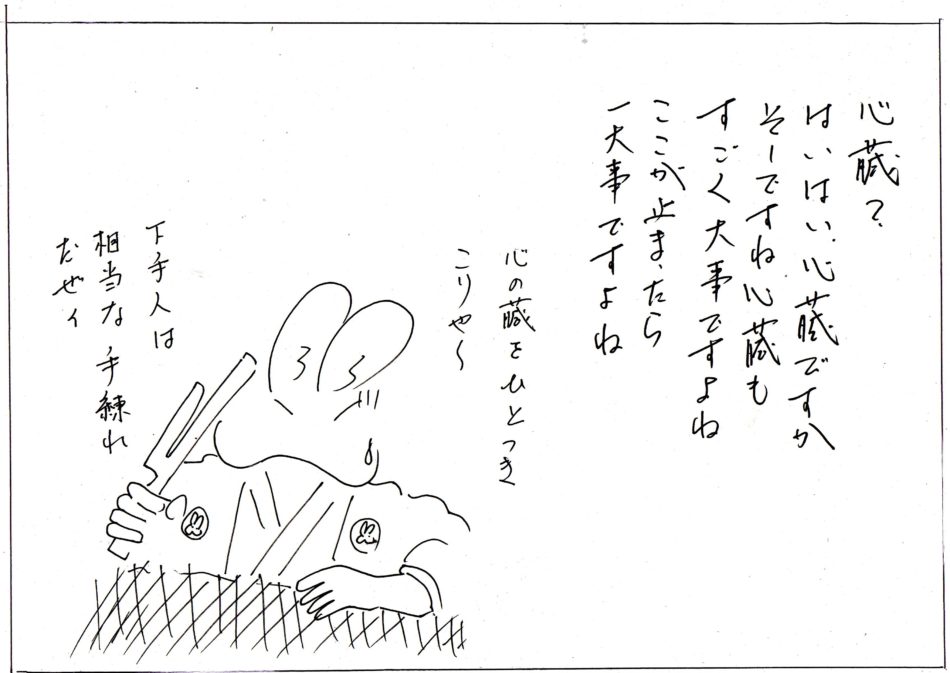 心臓?
はいはい、心臓ですか
そーですね心臓も
すごく大事ですよね
ここが止まったら
一大事ですよね
心の臓をひとつき
こりゃ〜
下手人は
相当な手練れ
だぜィ